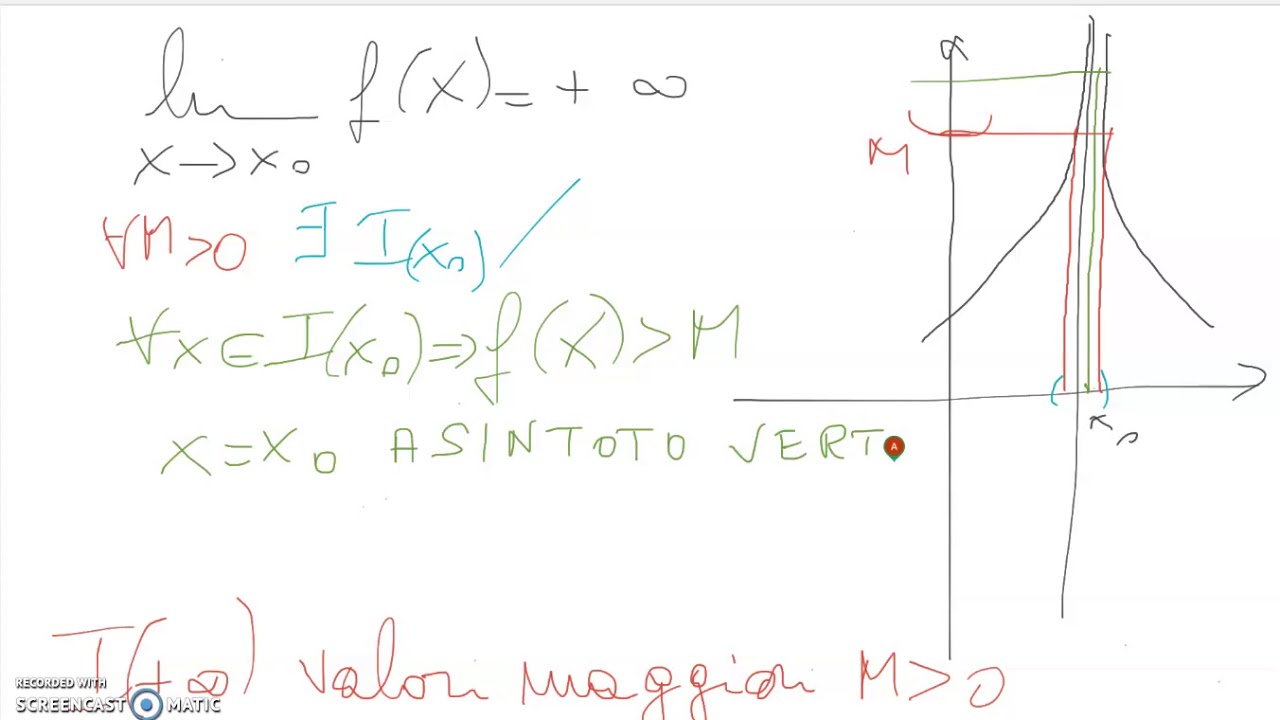 lim f(x) = + ∞
x → x₀
∀M>0 ∃ I(x₀) /
∀x ∈ I(x₀) ⇒ f(x) > M
x = x₀ ASINTOTO VERT
M
x₀
I(+∞) valori maggiori M>0
RECORDED WITH
SCREENCAST MATIC
A